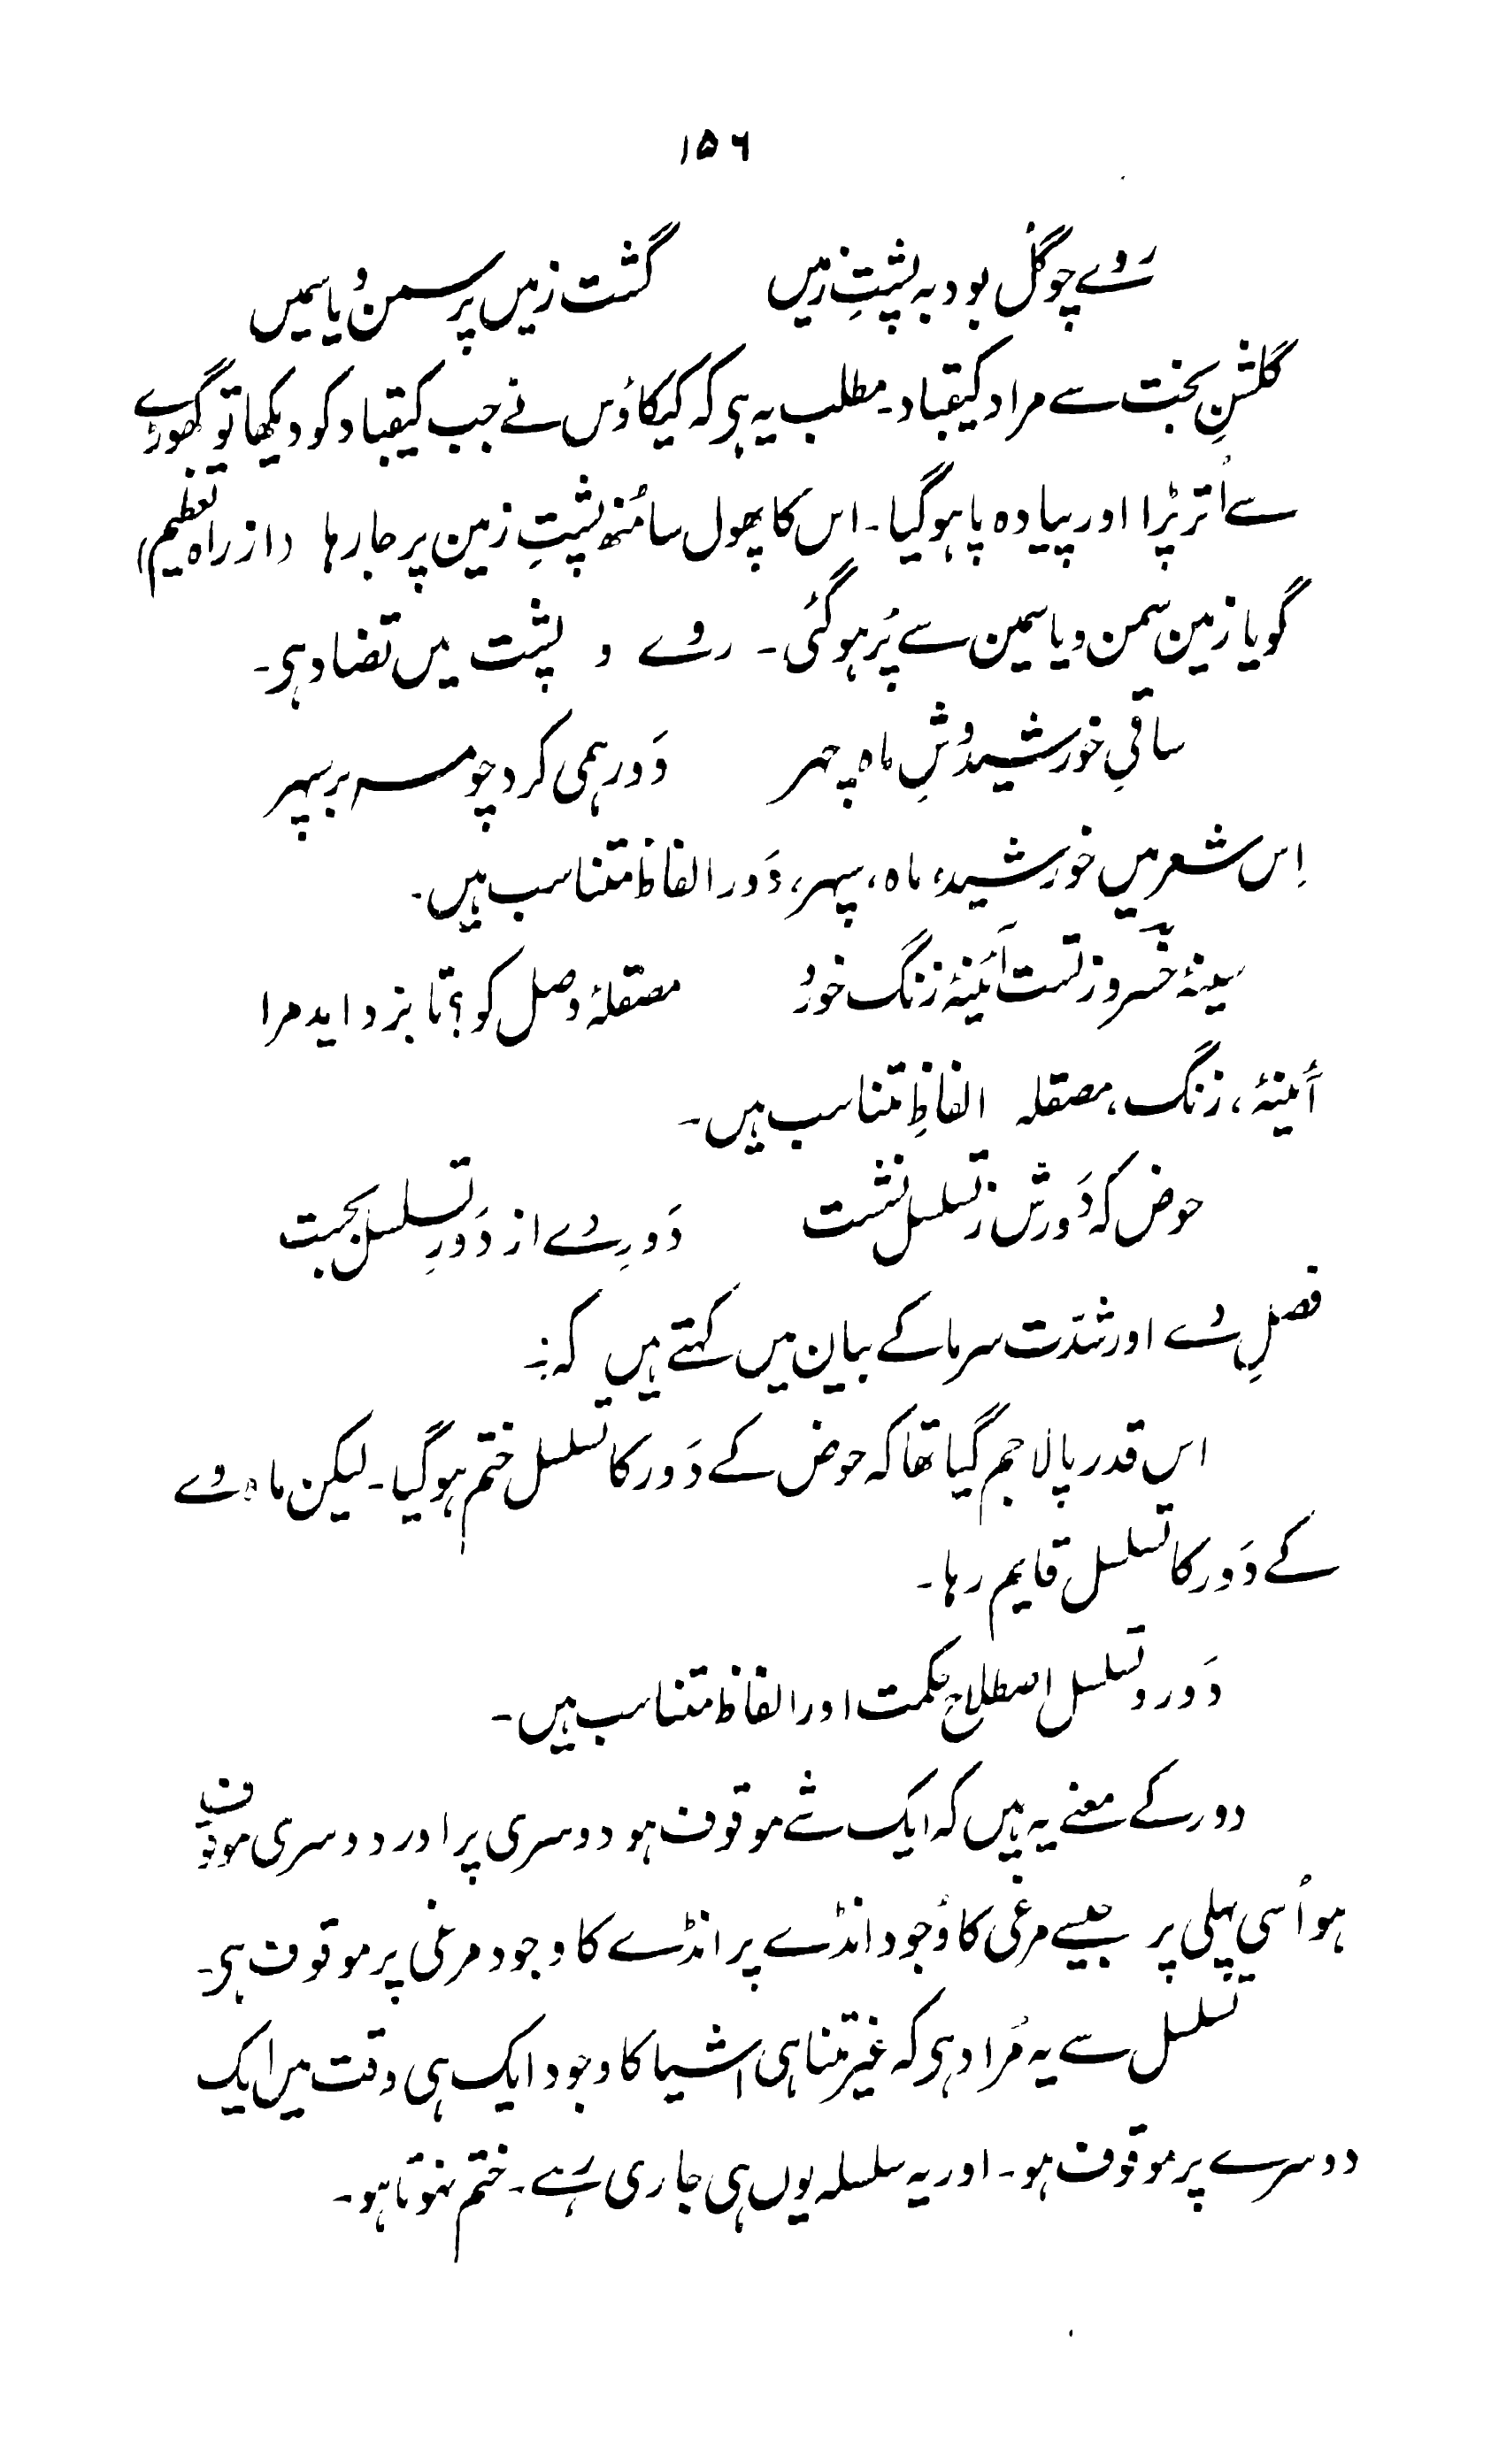 ۱۵۶
رُوے چو گل بود بہ پشتِ زمیں گشت زمیں پر سمن و یاسمیں
گلشنِ بخت سے مراد کیقباد۔ مطلب یہ ہی کہ کیکاؤس نے جب کیقباد کو دیکھا تو گھوڑے
سے اُتر پڑا اور پیادہ پا ہوگیا۔ اس کا پھول سا مُنھ پشتِ زمین پر جا رہا (از راہ تعظیم)
گویا زمین سمن و یاسمین سے پُر ہوگئی۔ روے و پشت میں تضاد ہی۔
ساقیِ خورشید وشِ ماہ چہر دَور ہمی کرد چو مہ بر سپہر
اِس شعر میں خورشید، ماہ، سپہر، دَور الفاظ متناسب ہیں۔
سینۂ خسرو زتست آئینۂ زنگ خورد مصقلۂ وصل کو؟ تا بزداید مرا
آئینۂ، زنگ، مصقلہ الفاظِ متناسب ہیں۔
حوض کہ دَورش ز تسلسل نشست دَورِ دے از دَورِ تسلسل بجست
فصلِ دے اور شدّت سرما کے بیان میں کہتے ہیں کہ:۔
اس قدر پالا جم گیا تھا کہ حوض کے دَور کا تسلسل ختم ہوگیا۔ لیکن ماہ دے
کے دَور کا تسلسل قایم رہا۔
دَور و تسلسل اصطلاح حکمت اور الفاظ متناسب ہیں۔
دور کے معنے یہ ہیں کہ ایک شے موقوف ہو دوسری پر اور دوسری موقوف
ہو اُسی پہلی پر جیسے مرغی کا وُجود انڈے پر انڈے کا وجود مرغی پر موقوف ہی۔
تسلسل سے یہ مُراد ہی کہ غیر متناہی اشیا کا وجود ایک ہی وقت میں ایک
دوسرے پر موقوف ہو۔ اور یہ سلسلہ یوں ہی جاری رَہے۔ ختم نہوتا ہو۔